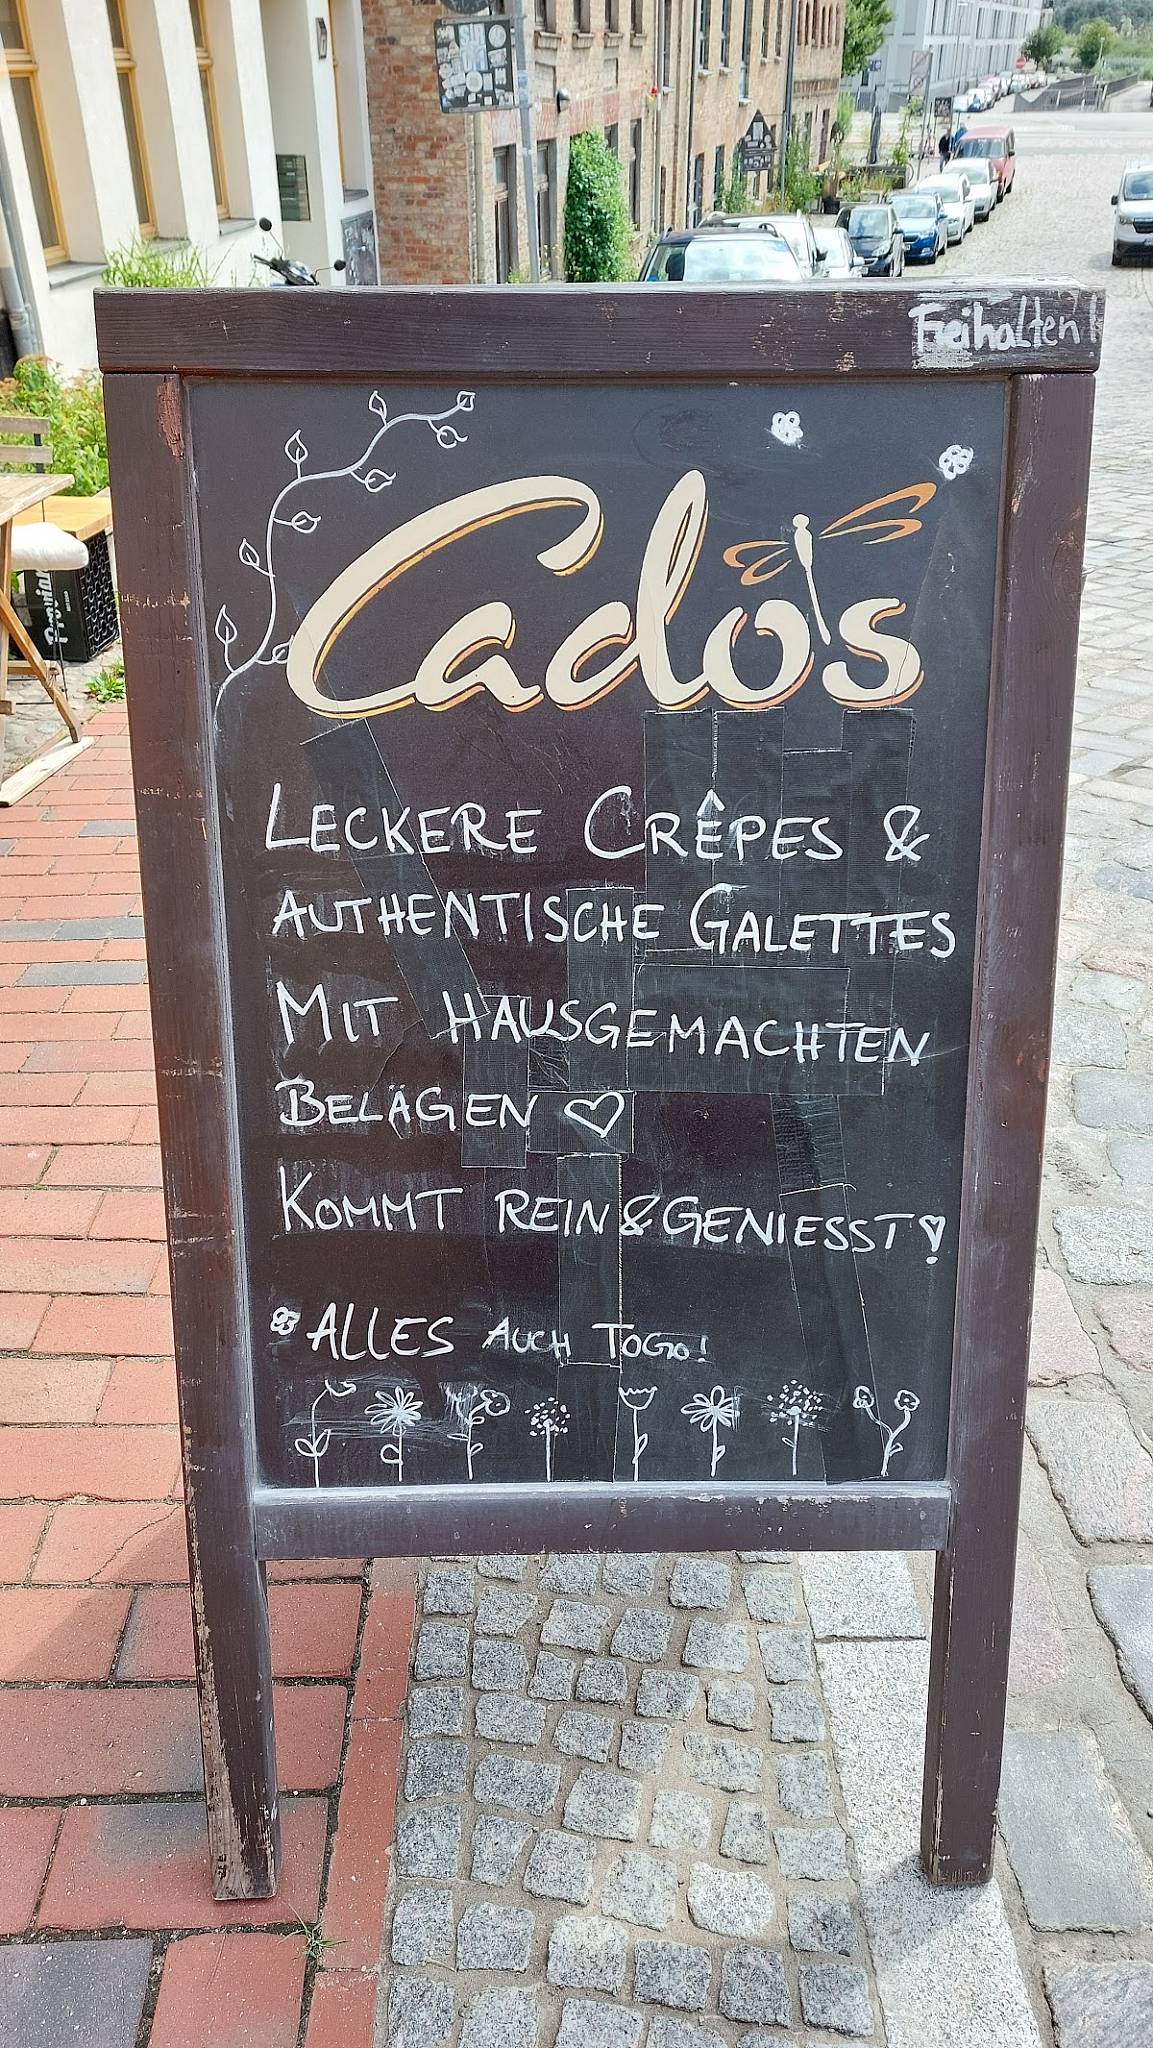 Freihalten!
Cado's
LECKERE CRÊPES &
AUTHENTISCHE GALETTES
MIT HAUSGEMACHTEN
BELÄGEN ♡
KOMMT REIN & GENIESST!
*ALLES AUCH TOGO!